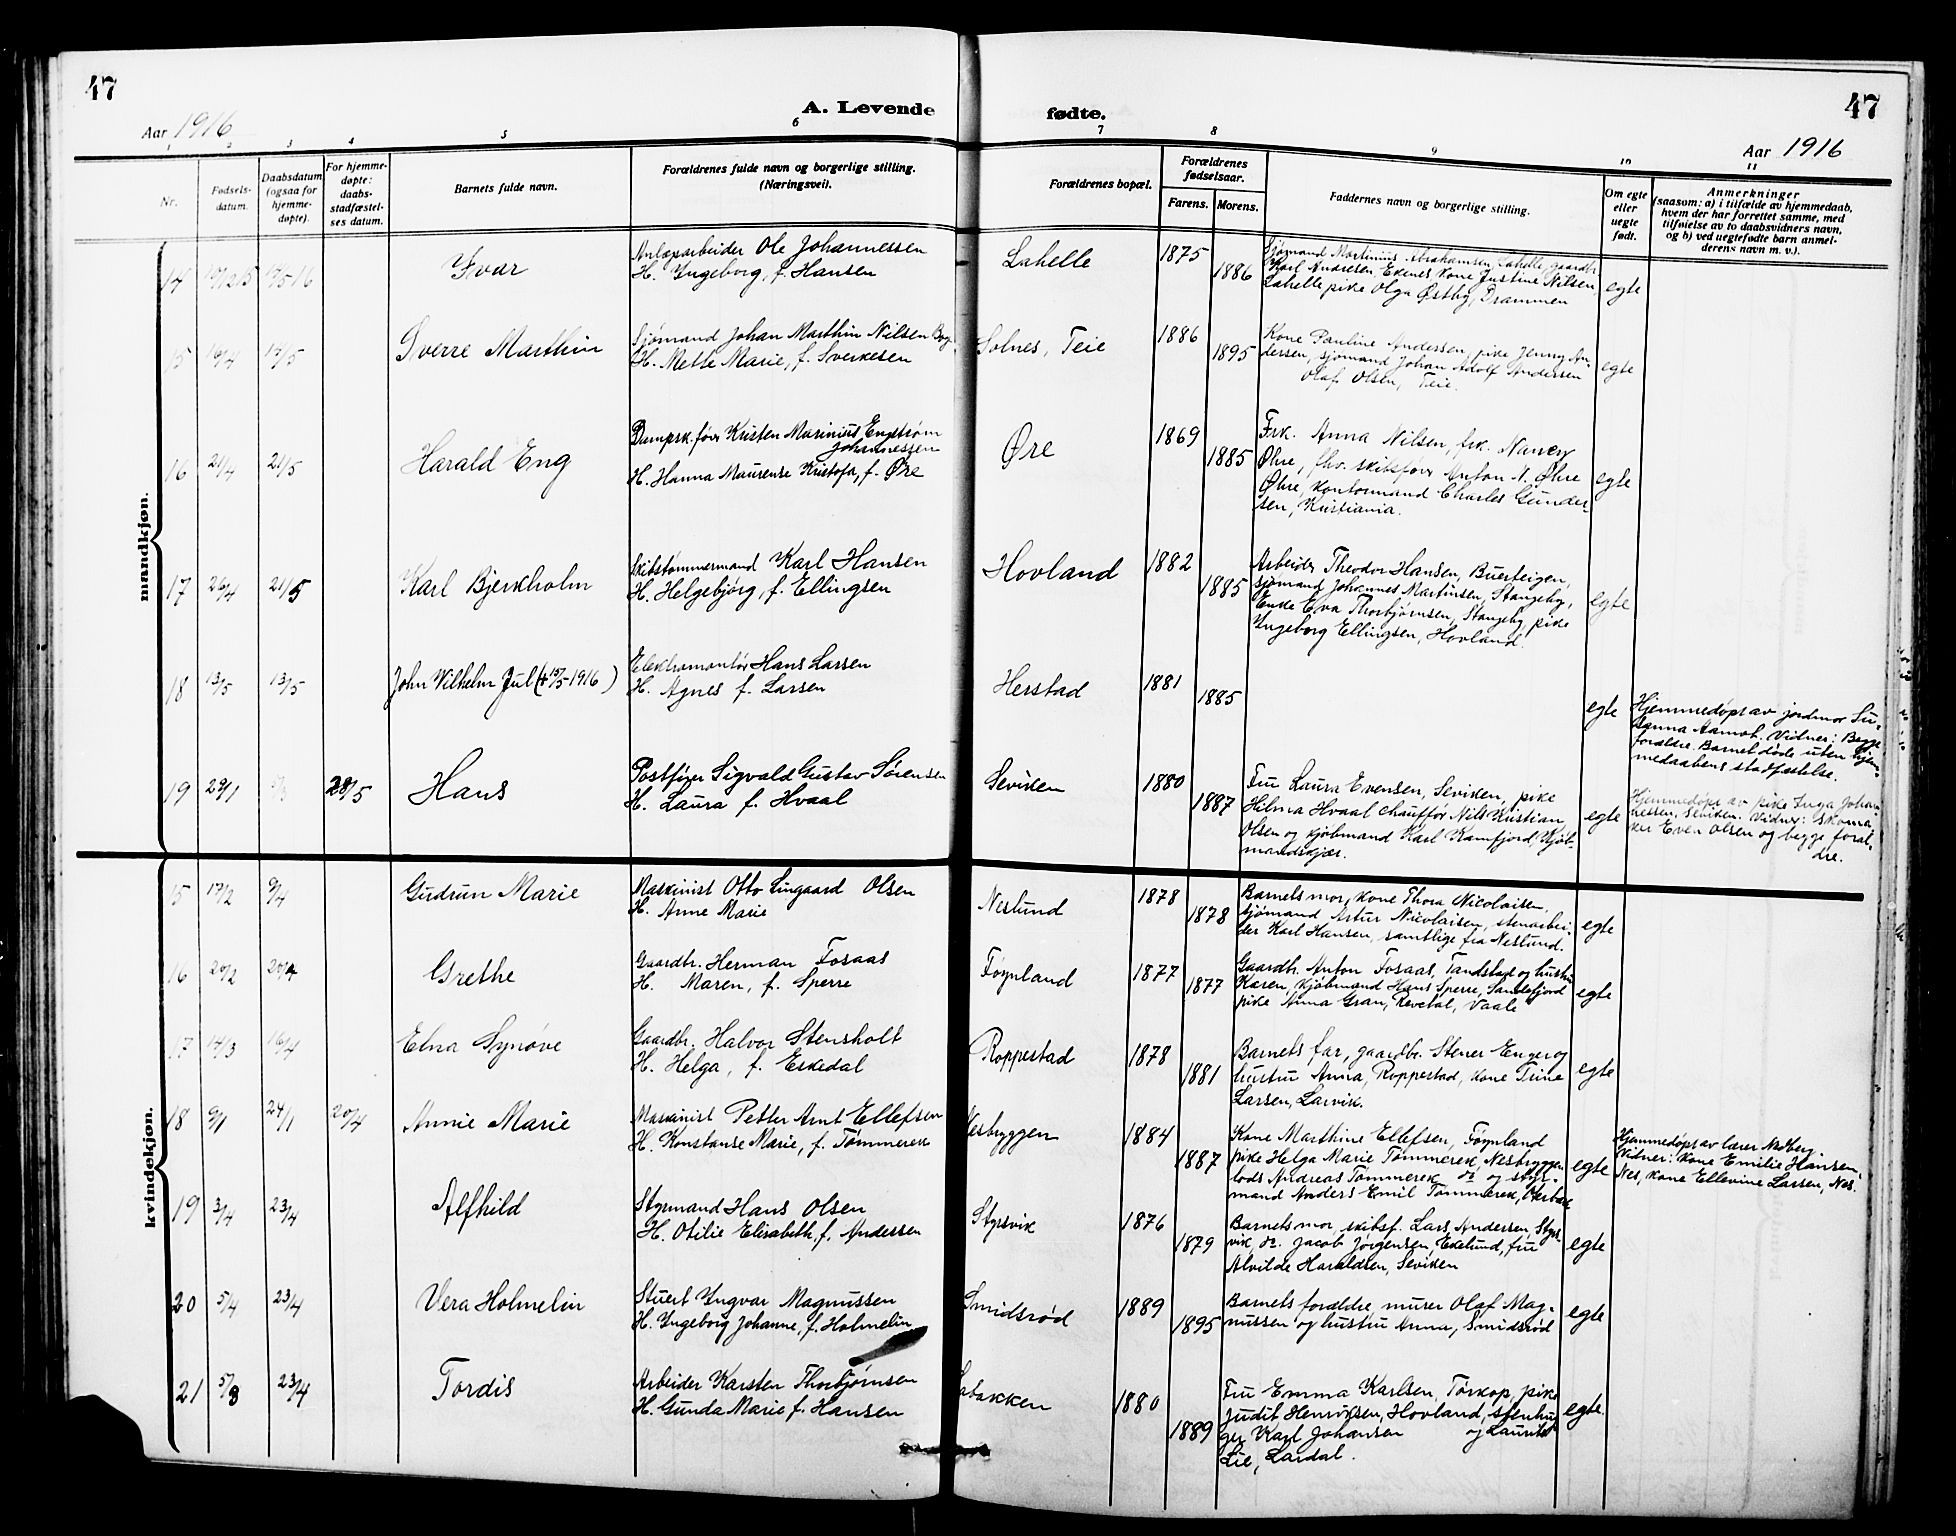 47
Aar 1916
A. Levende
fødte.
Aar 1916
47
1 2 3 4 5 6 7 8 9 10 11
Nr.
Fødsels-
datum.
Daabsdatum
(ogsaa for
hjemme-
døpte).
For hjemme-
døpte:
daabs-
stadfæstel-
ses datum.
Barnets fulde navn.
Forældrenes fulde navn og borgerlige stilling.
(Næringsvei).
Forældrenes bopæl.
Forældrenes
fødselsaar.
Farens. Morens.
Faddernes navn og borgerlige stilling.
Om egte
eller
uegte
født.
Anmerkninger
(saasom: a) i tilfælde av hjemmedaab,
hvem der har forrettet samme, med
tilføielse av to daabsvidners navn,
og b) ved uegtefødte barn anmel-
derens navn m. v.).
mandkjøn.
14
Ivar
Anlæparbeider Ole Johannessen
H. Ingeborg, f. Hansen
Lahelle
1875
1886
Sjømand Martinius Abrahamsen, Lahelle, gaardbr.
Karl Andresen Ekenes kone Justine Nilsen,
Lahelle pike Olga Østby, Drammen
egte
15 16/4 17/5
Sverre Marthin
Sjømand Johan Marthin Nilsen Bog.
H. Mette Marie, f. Sverkesen
Solnes, Teie
1886
1895
Kone Pauline Andersen, pike Jenny An-
dersen, sjømand Johan Adolf Andersen
Olaf Olsen, Teie.
egte
16 21/4 21/5
Harald Eng
Dampsk.fører Kristen Marinius Engstrøm
Johannessen
H. Hanna Maurense Kristofa, f. Øre
Øre
1869
1885
Frk. Anna Nilsen, frk. Nancy
Øhre, fhv. skibsfører Anton N. Øhre
Øhre, kontormand Charles Gunder-
sen, Kristiania.
egte
17 26/4 21/5
Karl Bjerkholm
Skibstømmermand Karl Hansen
H. Helgebjørg, f. Ellingsen
Hovland
1882
1885
Arbeider Theodor Hansen, Buerteigen,
sjømand Johannes Martinsen, Stangeby,
Enke Eva Thorbjørnsen, Stangeby, pike
Ingeborg Ellingsen, Hovland.
egte
18 13/5 13/5
John Wilhelm Jul († 15/5-1916)
Elektromontør Hans Larsen
H. Agnes f. Larsen
Herstad
1881
1885
egte
Hjemmedøpt av jordmor Su-
sanna Aamot. Vidner: Begge
forældre. Barnet døde uten hjem-
medaabens stadfæstelse.
19 29/1 28/5
Hans
Postfører Sigvald Gustav Sørensen
H. Laura f. Hvaal
Seviken
1880
1887
Fru Laura Evensen, Seviken, pike
Hilma Hvaal chauffør Nils Kristian
Olsen og kjøbmand Karl Kamfjord, Kjøb-
mandskjær.
egte
Hjemmedøpt av pike Inga Johan-
nessen, Seviken. Vidner: Skoma-
ker Even Olsen og begge foræl-
dre.
kvindekjøn.
15 17/2 9/4
Gudrun Marie
Maskinist Otto Lingaard Olsen
H. Anne Marie
Neslund
1878
1878
Barnets mor, kone Thora Nicolaisen,
sjømand Artur Nicolaisen, stenarbei-
der Karl Hansen, samtlige fra Neslund.
egte
16 20/2 20/4
Grethe
Gaardbr. Herman Fosaas
H. Maren, f. Sperre
Føynland
1877
1877
Gaardbr. Anton Fosaas, Tandstad og hustru
Karen, kjøbmand Hans Sperre, Sandefjord
pike Anna Gran, Revetal, Vaale
egte
17 14/3 16/4
Elna Synøve
Gaardbr. Halvor Stensholt
H. Helga, f. Eskedal
Roppestad
1878
1881
Barnets far, gaardbr. Stener Enger og
hustru Anna, Roppestad, kone Trine
Larsen, Larvik.
egte
18 9/1 24/1 20/4
Annie Marie
Maskinist Petter Arnt Ellefsen
H. Konstanse Marie, f. Tømmerek
Nesbryggen
1884
1887
Kone Marthine Ellefsen, Føynland
pike Helga Marie Tømmerek, Nesbryggen
lods Andreas Tømmerek do og styr-
mand Anders Emil Tømmerek,
egte
Hjemmedøpt av lærer Nadberg.
Vidner: kone Emilie Hansen,
Nes, kone Ellevine Larsen, Nes.
19 3/4 23/4
Alfhild
Styrmand Hans Olsen
H. Otilie Elisabeth, f. Andersen
Styrsvik
1876
1879
Barnets mor, skibsf. Lars Andersen, Styrs-
vik, do. Jacob Jørgensen, Ekelund, fru
Alvilde Haraldsen, Seviken
egte
20 5/4 23/4
Vera Holmelin
Stuert Yngvar Magnussen
H. Ingeborg Johanne, f. Holmelin
Smidsrød
1889
1895
Barnets forældre, murer Olaf Mag-
nussen og hustru Anna, Smidsrød
egte
21 5/3 23/4
Tordis
Arbeider Karsten Thorbjørnsen
H. Gunda Marie f. Hansen
Labakken
1880
1889
Fru Emma Karlsen, Tørkop, pike
Judit Henriksen, Hovland, stenhug-
ger Karl Johansen og Laurits
Lie, Lardal.
egte.